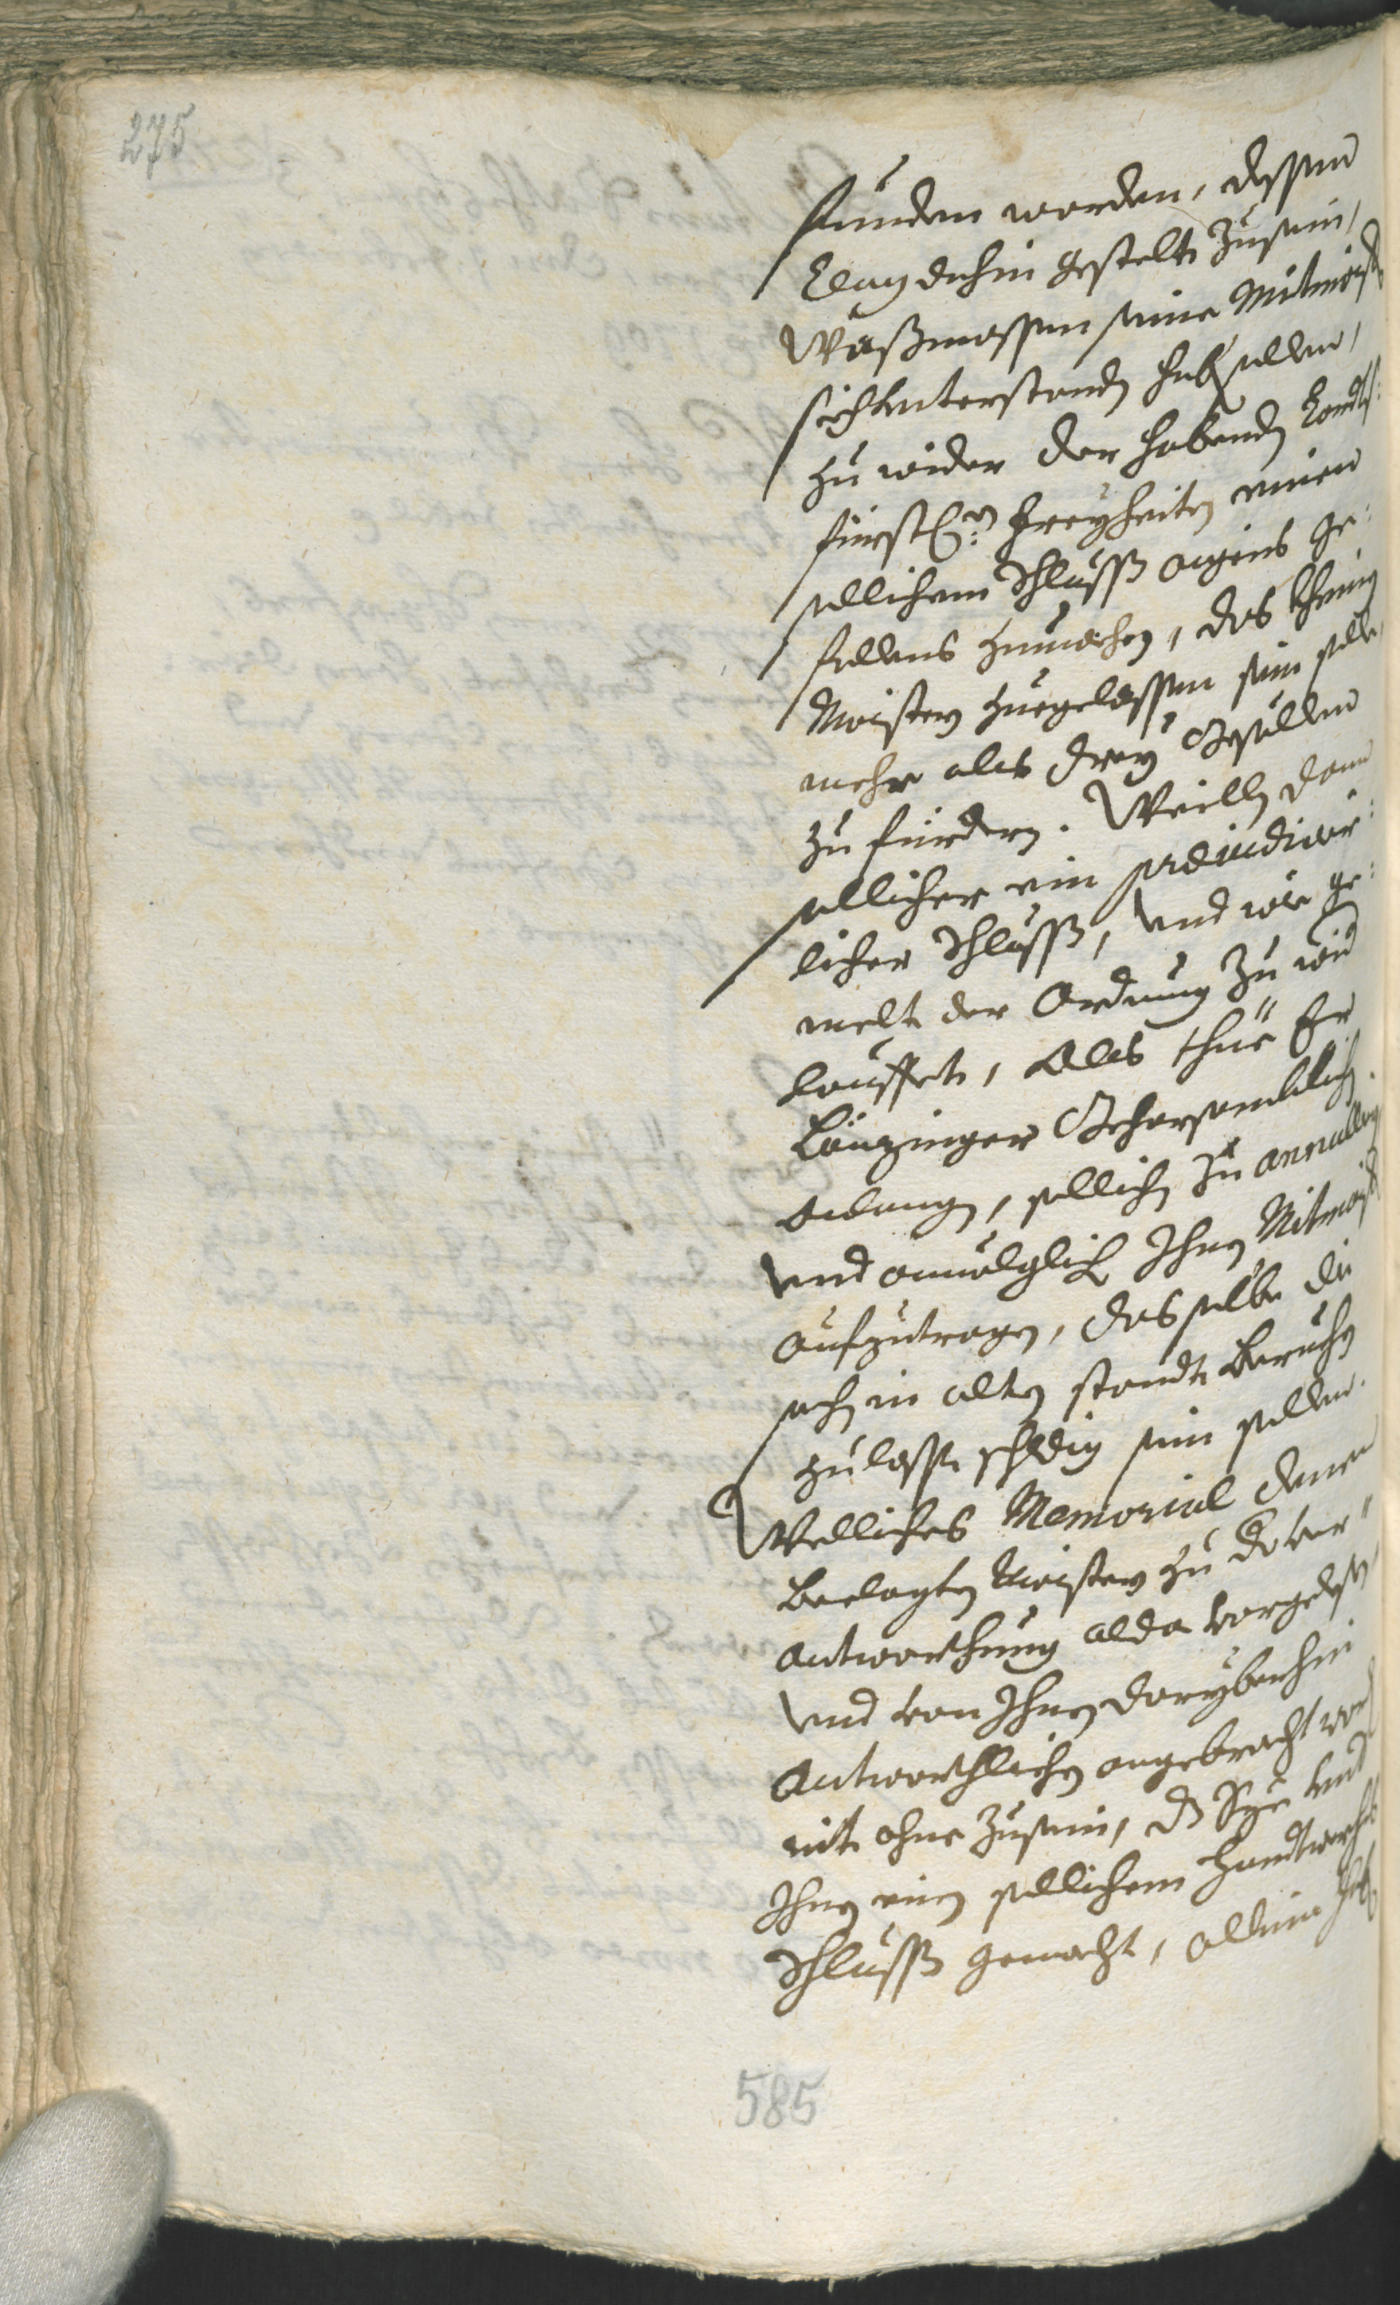 275
funden worden, dessen
Clag dahin gestelt zusein,
Waßmassen seine Mitmaist
sich unterstanden hab sollen,
zu wider der habenden Landts:
fürstl:n Freyheiten einen
sollichen Schlusß aigens ge:
fallens zumachen, das kheinen
Maistern zuegelassen sein solle,
mehr als drey Gesellen
zu fürdern. Weillen dann
sollicher ein præiudicir:
licher Schlusß, und wie ge:
melt der Ordnung zu wid
lauffet, Als thue Er
Gehorsamblich
anlangen, sollichen zu annullier
und Ihnen Mitmaist
aufzutragen, das selbe die
sach in alten standt beruehen
zulassen schuldig sein sollen.
Welliches Memorial denen
beclagten Maistern zu der ver"
antworthung alda vorgelesen,
und von Ihnen dariyberhin
antworthlichen angebracht word
nit ohne zusein, das Sye unt
Ihnen einen sollichen Handtwerchs
Schlusß gemacht, allein hab
585